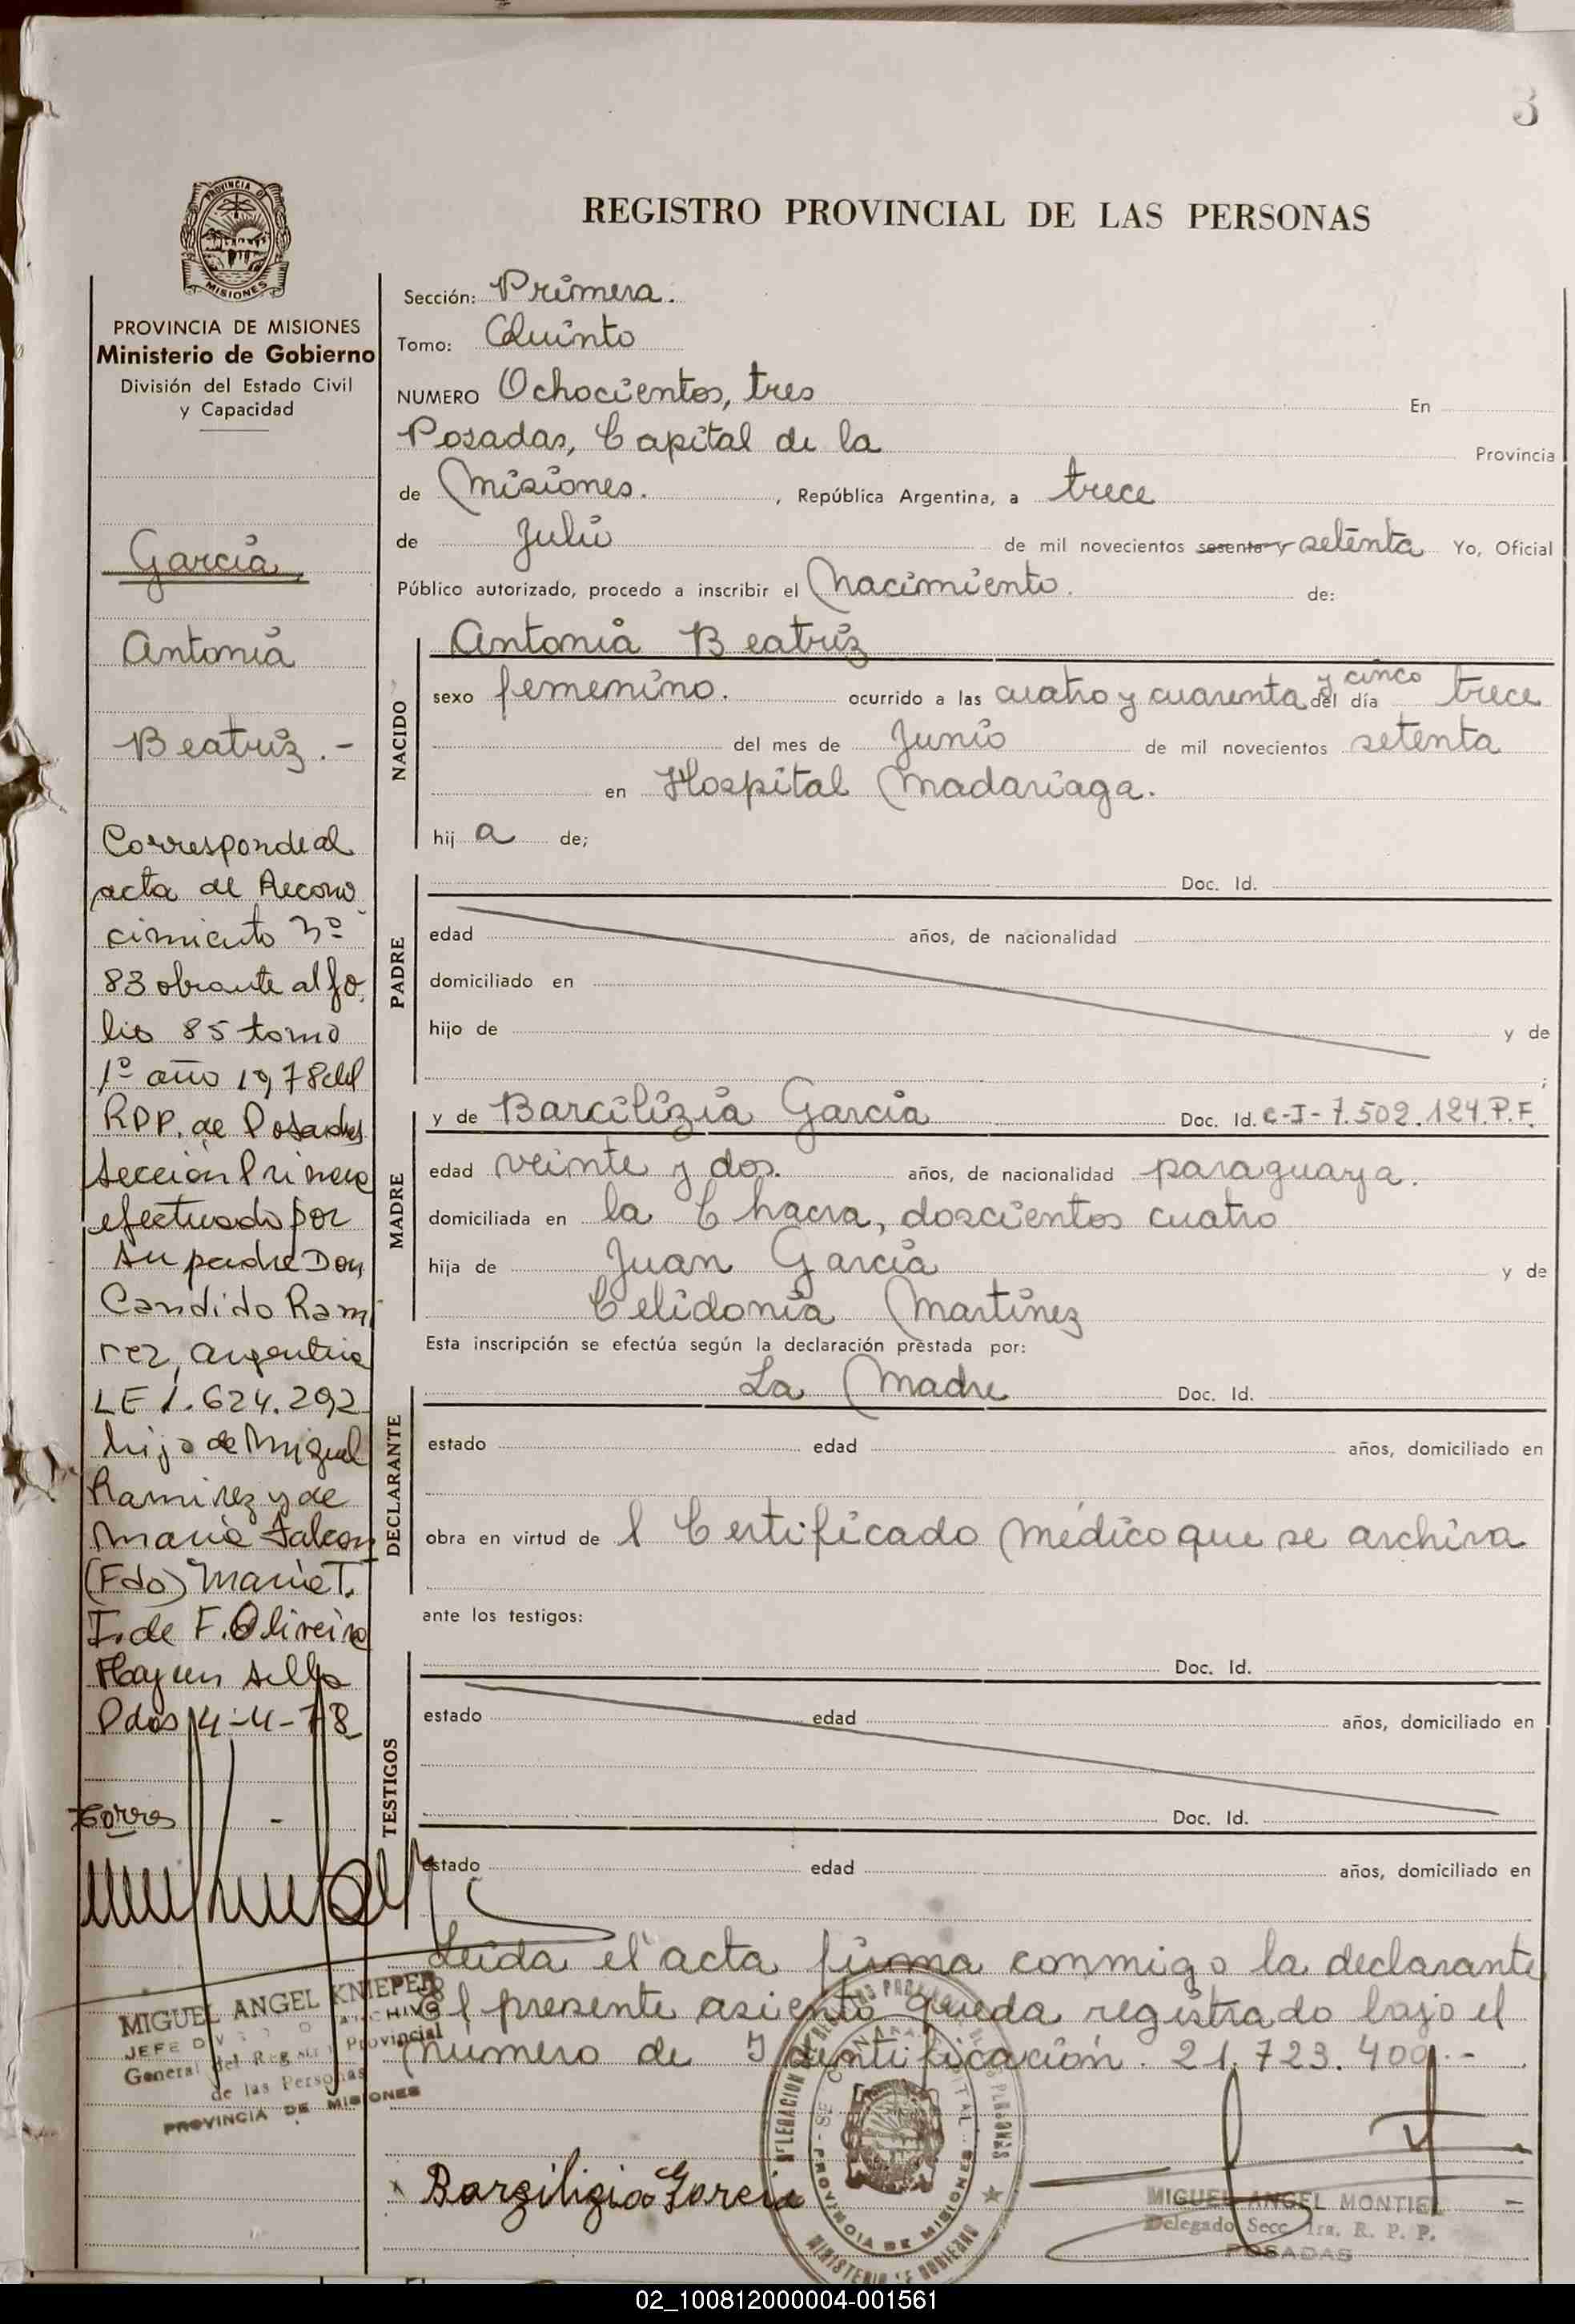 3
PROVINCIA DE
MISIONES
PROVINCIA DE MISIONES
Ministerio de Gobierno
División del Estado Civil
y Capacidad
García
Antonia
Beatriz.-
Corresponde al
acta de Recono
cimiento Nº
83 obrante al fo
lio 85 tomo
1º año 1978 del
RPP. de Posadas
Sección Primera
efectuado por
su padre Don
Candido Rami
rez, argentino
LE 1.624.292
hijo de Miguel
Ramirez y de
Maria Falcon
(Fdo) Maria T.
I. de F. Oliveira
Hay un sello
Pdas 4-4-78
MIGUEL ANGEL KNIEPER
JEFE DIVISION ARCHIVO
General del Registro Provincial
de las Personas
PROVINCIA DE MISIONES
REGISTRO PROVINCIAL DE LAS PERSONAS
Sección: Primera.
Tomo: Quinto
NUMERO Ochocientos, tres En
Posadas, Capital de la Provincia
de Misiones. , República Argentina, a trece
de Julio de mil novecientos sesenta y setenta Yo, Oficial
Público autorizado, procedo a inscribir el Nacimiento. de:
NACIDO
Antonia Beatriz
sexo femenino. ocurrido a las cuatro y cuarenta y cinco del día trece
del mes de Junio de mil novecientos setenta
en Hospital Madariaga.
hij a de;
PADRE
Doc. Id.
edad años, de nacionalidad
domiciliado en
hijo de y de
;
MADRE
y de Barcilizia García Doc. Id. C-I-7.502.124.P.F.
edad veinte y dos. años, de nacionalidad paraguaya.
domiciliada en la Chacra, doscientos cuatro
hija de Juan García y de
Celidonia Martínez
Esta inscripción se efectúa según la declaración prestada por:
DECLARANTE
La Madre Doc. Id.
estado edad años, domiciliado en
obra en virtud de l Certificado Médico que se archiva
ante los testigos:
TESTIGOS
Doc. Id.
estado edad años, domiciliado en
Doc. Id.
estado edad años, domiciliado en
Leída el acta firma conmigo la declarante
El presente asiento queda registrado bajo el
número de Identificación. 21.723.409.-
Barzilizia Garcia
PROVINCIA DE MISIONES
MINISTERIO DE GOBIERNO
MIGUEL ANGEL MONTIEL
Delegado Secc. 1ra. R. P. P.
POSADAS
02_100812000004-001561